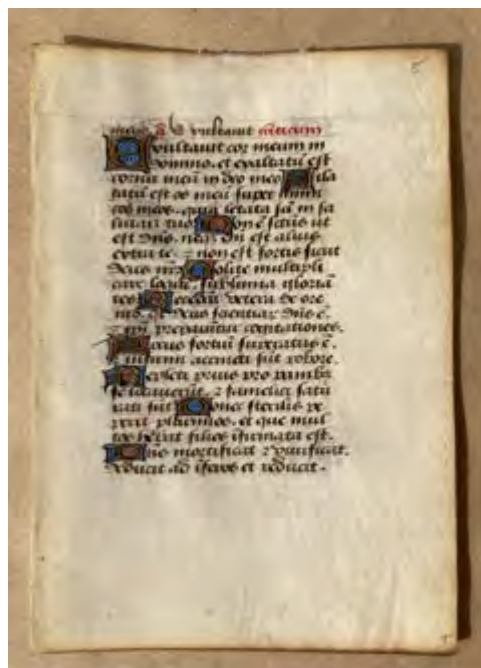 meus. a. Exultauit canticum
Exultauit cor meum in
domino. et exaltatū est
cornu meū in deo meo Dila
tatū est os meū super inimi
cos meos. quia letata sū in sa
lutari tuo Non ē sctūs ut
est dn̄s. neq; est alius
extra te. ⁊ non est fortis sicut
deus nr̄ Nolite multipli
care loqui. sublimia gloriā
tes Recedāt vetera de ore
deus scientiaꝝ dn̄s ē.
⁊ ipi preparātur cogitationes.
Arcus fortiū superatus ē.
⁊ infirmi accincti sūt robore.
Repleti prius pro panibꝫ
se locauerūt. ⁊ famelici satu
rati sūt Donec sterilis pe
perit plurimos. et que mul
tos hēbat filios īfirmata est.
Dn̄s mortificat ⁊ viuificat.
deducit ad īferos et reducit.